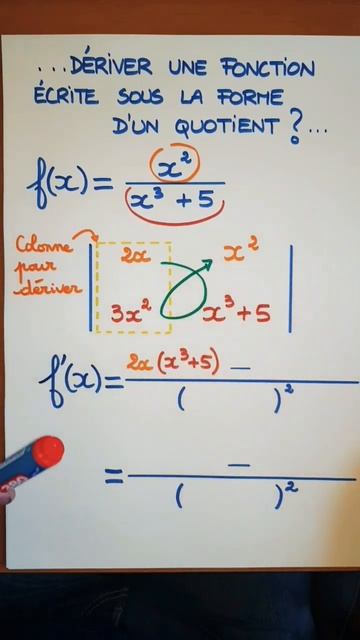 ...DÉRIVER UNE FONCTION
ÉCRITE SOUS LA FORME
D'UN QUOTIENT ?...
f(x) = x² / x³ + 5
Colonne pour dériver
2x x²
3x² x³ + 5
f'(x) = 2x(x³+5) — / ( )²
= — / ( )²